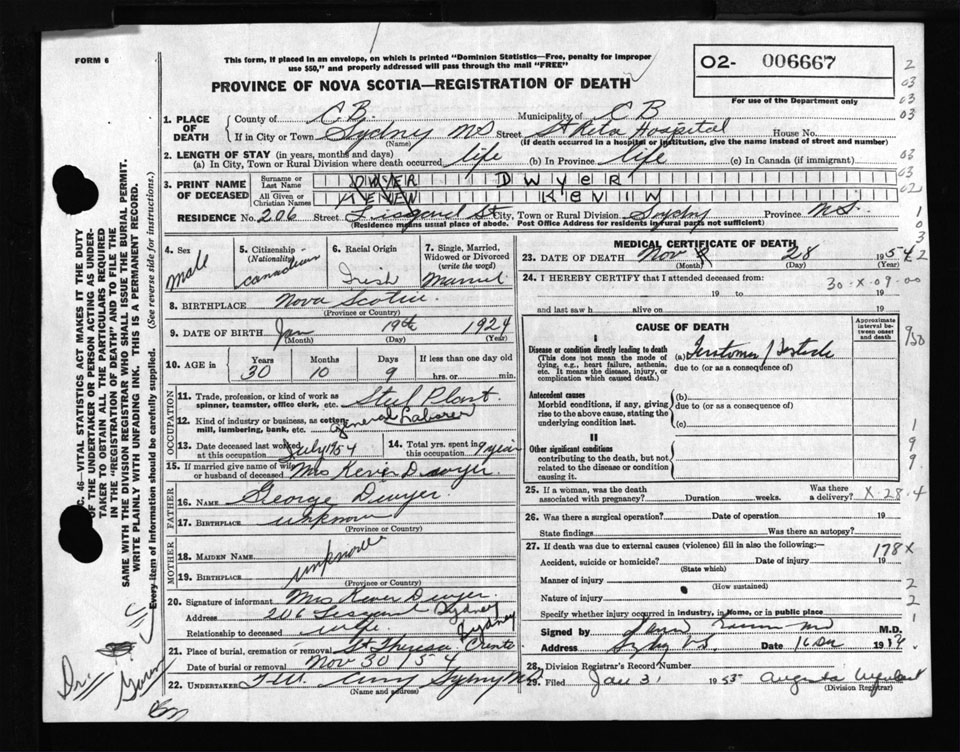 FORM 6
This form, if placed in an envelope, on which is printed "Dominion Statistics—Free, penalty for improper
use $50," and properly addressed will pass through the mail "FREE"
PROVINCE OF NOVA SCOTIA—REGISTRATION OF DEATH
O2- 006667
For use of the Department only
2
03
03
03
1. PLACE OF DEATH
County of C.B. Municipality of C B
If in City or Town Sydney NS Street St Rita Hospital House No.
(Name) (If death occurred in a hospital or institution, give the name instead of street and number)
2. LENGTH OF STAY (in years, months and days)
(a) In City, Town or Rural Division where death occurred life (b) In Province life (c) In Canada (if immigrant)
03
03
02
3. PRINT NAME OF DECEASED
Surname or Last Name DWYER DWyer
All Given or Christian Names
RESIDENCE No. 206 Street City, Town or Rural Division Sydny Province N.S.
(Residence means usual place of abode. Post Office Address for residents in rural parts not sufficient)
1
0
3
2
4. Sex
Male
5. Citizenship (Nationality)
Canadian
6. Racial Origin
Irish
7. Single, Married, Widowed or Divorced (write the word)
Married
8. BIRTHPLACE Nova Scotia
(Province or Country)
9. DATE OF BIRTH Jan 19th 1924
(Month) (Day) (Year)
10. AGE in
Years Months Days If less than one day old
30 10 9 hrs. or min.
OCCUPATION
11. Trade, profession, or kind of work as spinner, teamster, office clerk, etc. Steel Plant
12. Kind of industry or business, as cotten mill, lumbering, bank, etc. General Laborer
13. Date deceased last worked at this occupation July 1954
14. Total yrs. spent in this occupation
15. If married give name of wife or husband of deceased Mrs Dwyer
FATHER
16. NAME George Dwyer
17. BIRTHPLACE unknown
(Province or Country)
MOTHER
18. MAIDEN NAME unknown
19. BIRTHPLACE
(Province or Country)
20. Signature of informant Mrs Dwyer
Address 206 Sydney
Relationship to deceased wife Sydney
21. Place of burial, cremation or removal St Theresa
Date of burial or removal Nov 30/54
22. UNDERTAKER Sydny N.S.
(Name and address)
MEDICAL CERTIFICATE OF DEATH
23. DATE OF DEATH Nov 28 1954
(Month) (Day) (Year)
24. I HEREBY CERTIFY that I attended deceased from:
30-X-09-00
19 to 19
and last saw h alive on 19
CAUSE OF DEATH
Approximate interval between onset and death
I
Disease or condition directly leading to death (a) Teratoma / testicle
(This does not mean the mode of dying, e.g., heart failure, asthenia, etc. It means the disease, injury, or complication which caused death.)
due to (or as a consequence of)
Antecedent causes (b)
Morbid conditions, if any, giving rise to the above cause, stating the underlying condition last.
due to (or as a consequence of)
(c)
II
Other significant conditions
contributing to the death, but not related to the disease or condition causing it.
1
9
9
25. If a woman, was the death associated with pregnancy? Duration weeks. Was there a delivery? X-28-4
26. Was there a surgical operation? Date of operation 19
State findings Was there an autopsy?
27. If death was due to external causes (violence) fill in also the following:— 178X
Accident, suicide or homicide? Date of injury 19
(State which)
Manner of injury
(How sustained)
Nature of injury
Specify whether injury occurred in Industry, in Home, or in public place
2
2
1
Signed by M.D.
Address Date 19
28. Division Registrar's Record Number
29. Filed Jan 31 1955 Augusta
(Division Registrar)
C. 46—VITAL STATISTICS ACT MAKES IT THE DUTY
OF THE UNDERTAKER OR PERSON ACTING AS UNDER-
TAKER TO OBTAIN ALL THE PARTICULARS REQUIRED
IN THE "REGISTRATION OF DEATH" AND TO FILE THE
SAME WITH THE DIVISION REGISTRAR WHO SHALL ISSUE THE BURIAL PERMIT.
WRITE PLAINLY WITH UNFADING INK. THIS IS A PERMANENT RECORD.
Every item of Information should be carefully supplied. (See reverse side for instructions.)
Dr.